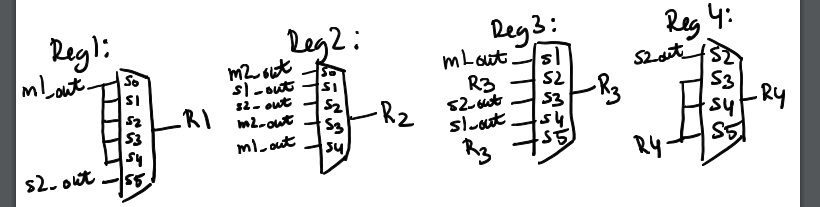 Reg1:
m1_out
s0
s1
s2
s3
s4
s2_out
s5
R1
Reg2:
m2_out
s0
s1_out
s1
s2_out
s2
m2_out
s3
m1_out
s4
R2
Reg3:
m1_out
s1
R3
s2
s2_out
s3
s1_out
s4
R3
s5
R3
Reg4:
s2_out
s2
s3
s4
R4
s5
R4